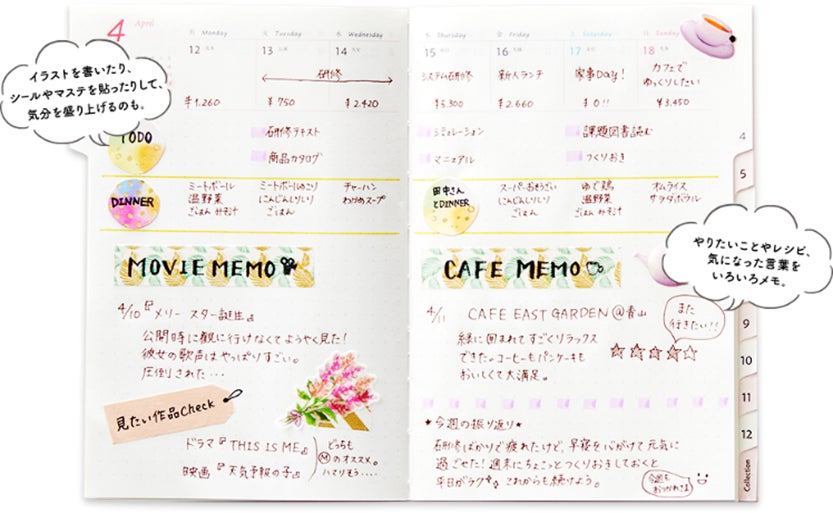 4 April
月 Monday
火 Tuesday
水 Wednesday
木 Thursday
金 Friday
土 Saturday
日 Sunday
12
13
14
15
16
17
18
研修
システム研修
新人ランチ
家事Day!
カフェで
ゆっくりしたい
¥1,260
¥750
¥2,420
¥5,300
¥2,660
¥0!!
¥3,450
イラストを書いたり、
シールやマステを貼ったりして、
気分を盛り上げるのも。
TODO
研修テキスト
商品カタログ
シミュレーション
マニュアル
課題図書読む
つくりおき
DINNER
ミートボール
温野菜
ごはん みそ汁
ミートボールのこり
にんじんしりしり
ごはん
チャーハン
わかめスープ
田中さん
とDINNER
スーパーおそうざい
にんじんしりしり
ごはん
ゆで鶏
温野菜
ごはん みそ汁
オムライス
サラダボウル
MOVIE MEMO
4/10『メリー スター誕生』
公開時に観に行けなくてようやく見た!
彼女の歌声はやっぱりすごい。
圧倒された・・・
見たい作品Check
ドラマ『THIS IS ME』
映画『天気予報の子』
どっちも
Ⓜのオススメ。
ハマりそう・・・・
CAFE MEMO
やりたいことやレシピ、
気になった言葉を
いろいろメモ。
4/11 CAFE EAST GARDEN @青山
また
行きたい!!
緑に囲まれてすごくリラックス
できた。コーヒーもパンケーキも
おいしくて大満足。
★今週の振り返り★
研修ばかりで疲れたけど、早寝を心がけて元気に
過ごせた!週末にちょこっとつくりおきしておくと
平日がラク これからも続けよう。
今週も
おつかれさま
4
5
9
10
11
12
Collection